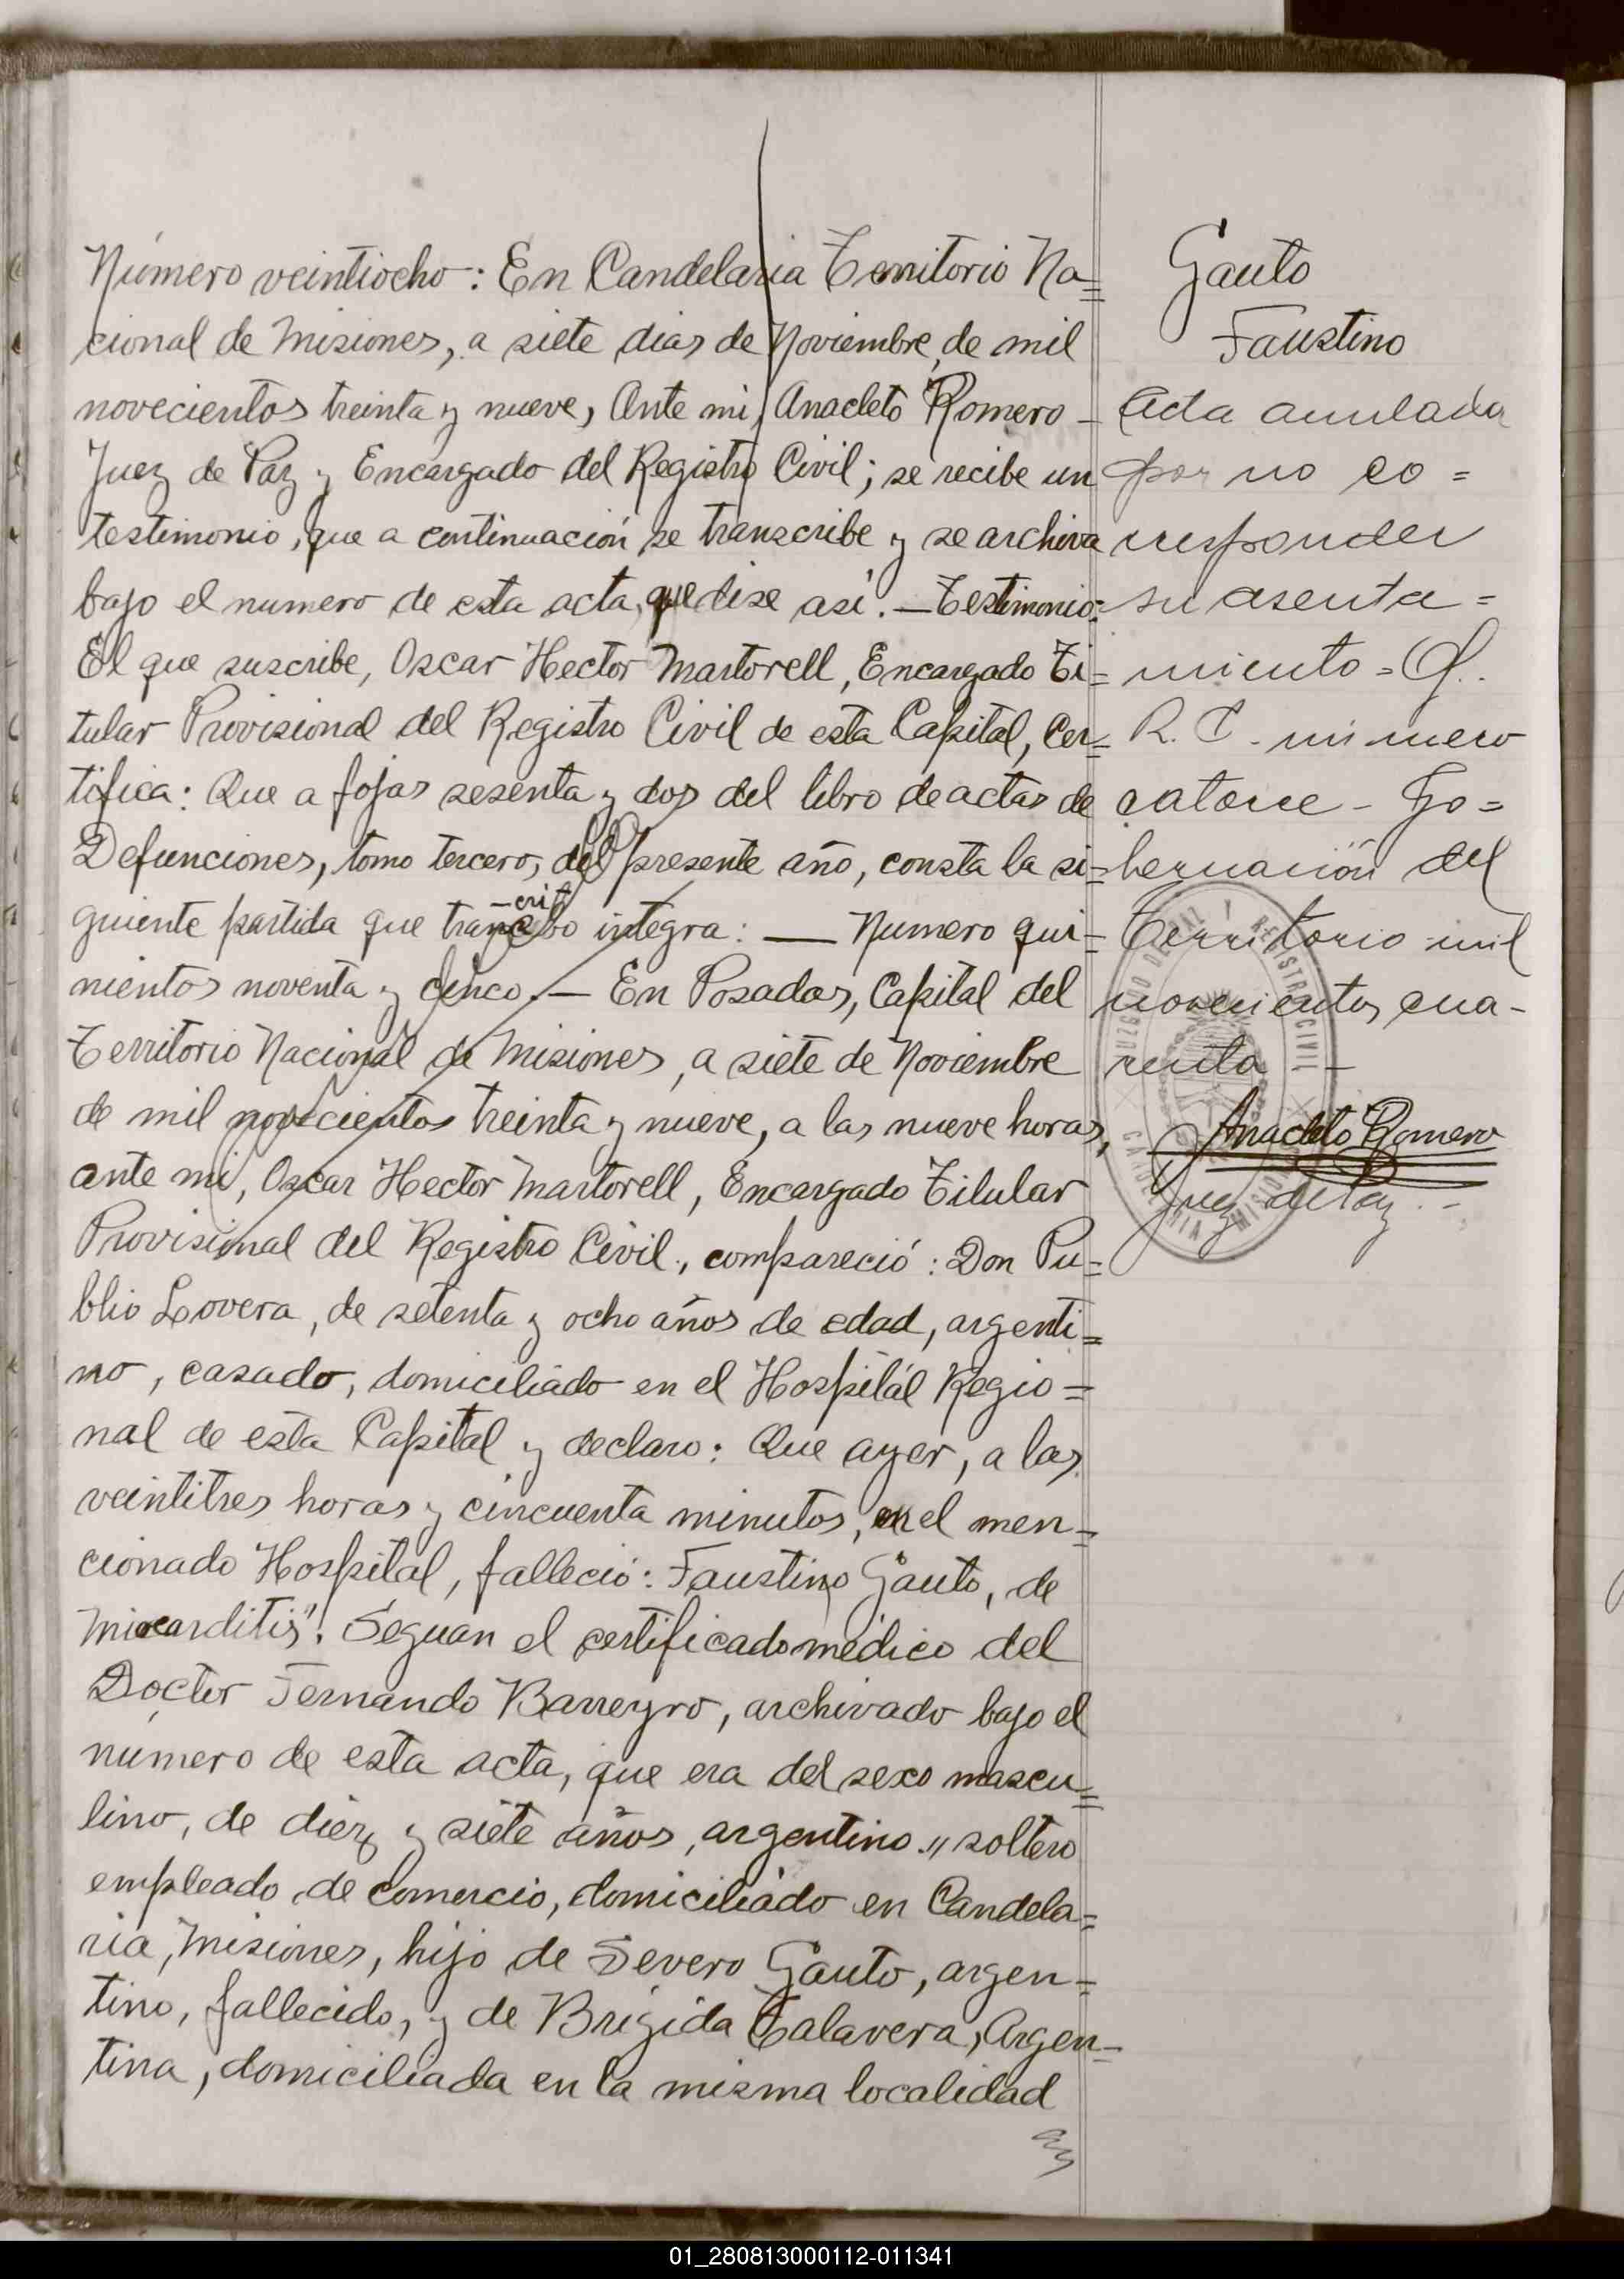 Número veintiocho: En Candelaria Territorio Na=
cional de Misiones, a siete dias de Noviembre, de mil
novecientos treinta y nueve, Ante mi, Anacleto Romero -
Juez de Paz y Encargado del Registro Civil; se recibe un
testimonio, que a continuación se transcribe y se archiva
bajo el numero de esta acta, que dise así. — Testimonio:
El que suscribe, Oscar Hector Martorell, Encargado Ti=
tular Provisional del Registro Civil de esta Capital, Cer=
tifica: Que a fojas sesenta y dos del libro de actas de
Defunciones, tomo tercero, del presente año, consta la si=
guiente partida que integra: — Numero qui=
nientos noventa y cinco. — En Posadas, Capital del
Territorio Nacional de Misiones, a siete de Noviembre
de mil novecientos treinta y nueve, a las nueve horas,
ante mi, Oscar Hector Martorell, Encargado Titular
Provisional del Registro Civil, compareció: Don Pu=
blio Lovera, de setenta y ocho años de edad, argenti=
no, casado, domiciliado en el Hospital Regio=
nal de esta Capital y declaro: Que ayer, a las
veintitres horas y cincuenta minutos, en el men=
cionado Hospital, falleció: Faustino Gauto, de
Miocarditis". Seguan el certificado médico del
Doctor Fernando Barreyro, archivado bajo el
número de esta acta, que era del sexo mascu=
lino, de diez y siete años, argentino, soltero
empleado de comercio, domiciliado en Candela=
ria, Misiones, hijo de Severo Gauto, argen=
tino, fallecido, y de Brígida Talavera, Argen=
tina, domiciliada en la misma localidad
Gauto
Faustino
Acta anulada
por no co=
rresponder
su asenta=
miento =
R. C. número
catorce - Go=
bernación del
Territorio mil
novecientos cua-
renta -
Anacleto Romero
Juez de Paz
JUZGADO DE PAZ Y REGISTRO CIVIL
CANDELARIA MISIONES
01_280813000112-011341